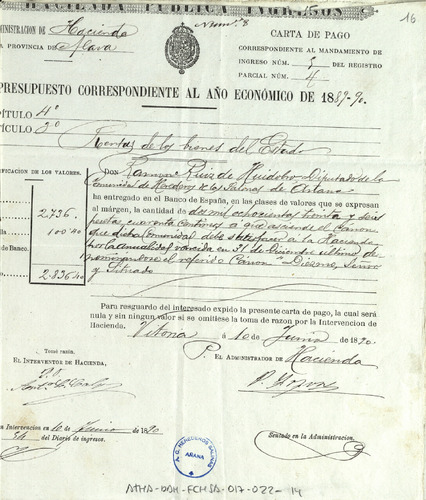 HACIENDA PÚBLICA INGRESOS
Núm.º 8
16
ADMINISTRACION DE Hacienda
LA PROVINCIA DE Alava
CARTA DE PAGO
CORRESPONDIENTE AL MANDAMIENTO DE
INGRESO NÚM. 5 DEL REGISTRO
PARCIAL NÚM. 4
PRESUPUESTO CORRESPONDIENTE AL AÑO ECONÓMICO DE 1889-90.
CAPÍTULO 4º
ARTÍCULO 3º
Rentas de los bienes del Estado
CLASIFICACION DE LOS VALORES.
DON Ramon Ruiz de Huidobro Diputado de la
Comunidad de Herederos de las Salinas de Añana
ha entregado en el Banco de España, en las clases de valores que se expresan
al márgen, la cantidad de dos mil ochocientas treinta y seis
pesetas cuarenta centimos á que asciende el Cánon
que dicha Comunidad debe satisfacer á la Hacienda
por la anualidad vencida en 31 de Diciembre último de-
nominandose el referido Cánon "Diezmo,
y
2.736
100'40
de Banco.
2.836'40
Para resguardo del interesado expido la presente carta de pago, la cual será
nula y sin ningun valor si se omitiese la toma de razon por la Intervencion de
Hacienda.
Vitoria á 10 de Junio de 1890.
Tomé razón.
EL INTERVENTOR DE HACIENDA,
P. EL ADMINISTRADOR DE Hacienda
en Intervencion en 10 de Junio de 1890
del Diario de ingresos.
Sentado en la Administracion.
A. C. HEREDEROS SALINAS
AÑANA
ATHA-DAH-FCHSA-017-022-14